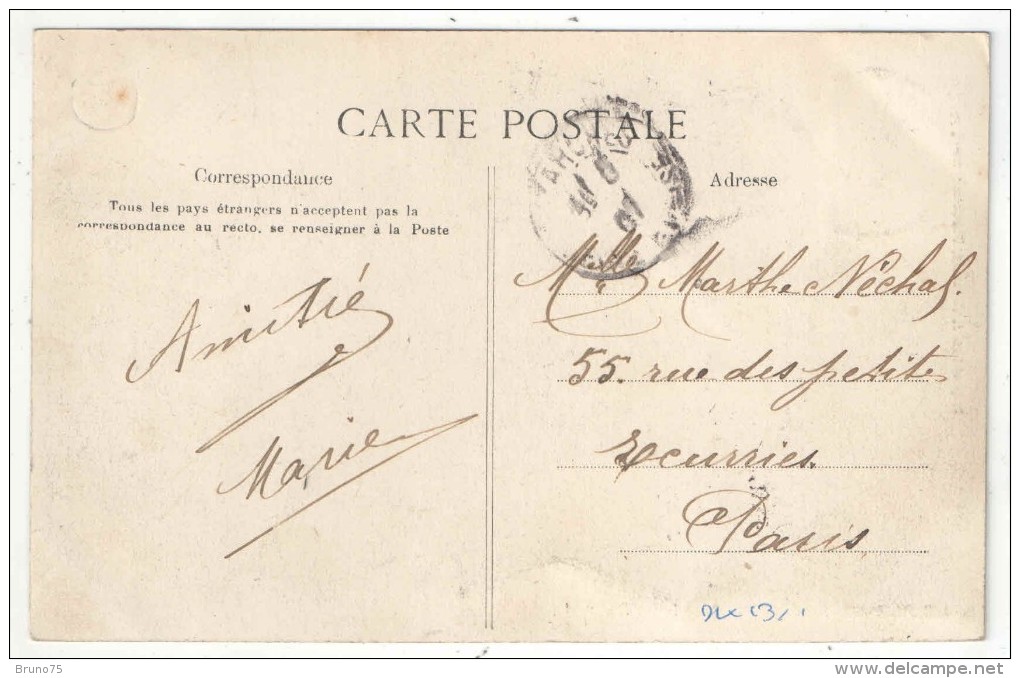 CARTE POSTALE
Correspondance
Tous les pays étrangers n'acceptent pas la
correspondance au recto, se renseigner à la Poste
Amitié
Marie
Adresse
Mlle Marthe Néchal.
55. rue des petites
Ecurries.
Paris
Bruno75
www.delcampe.net